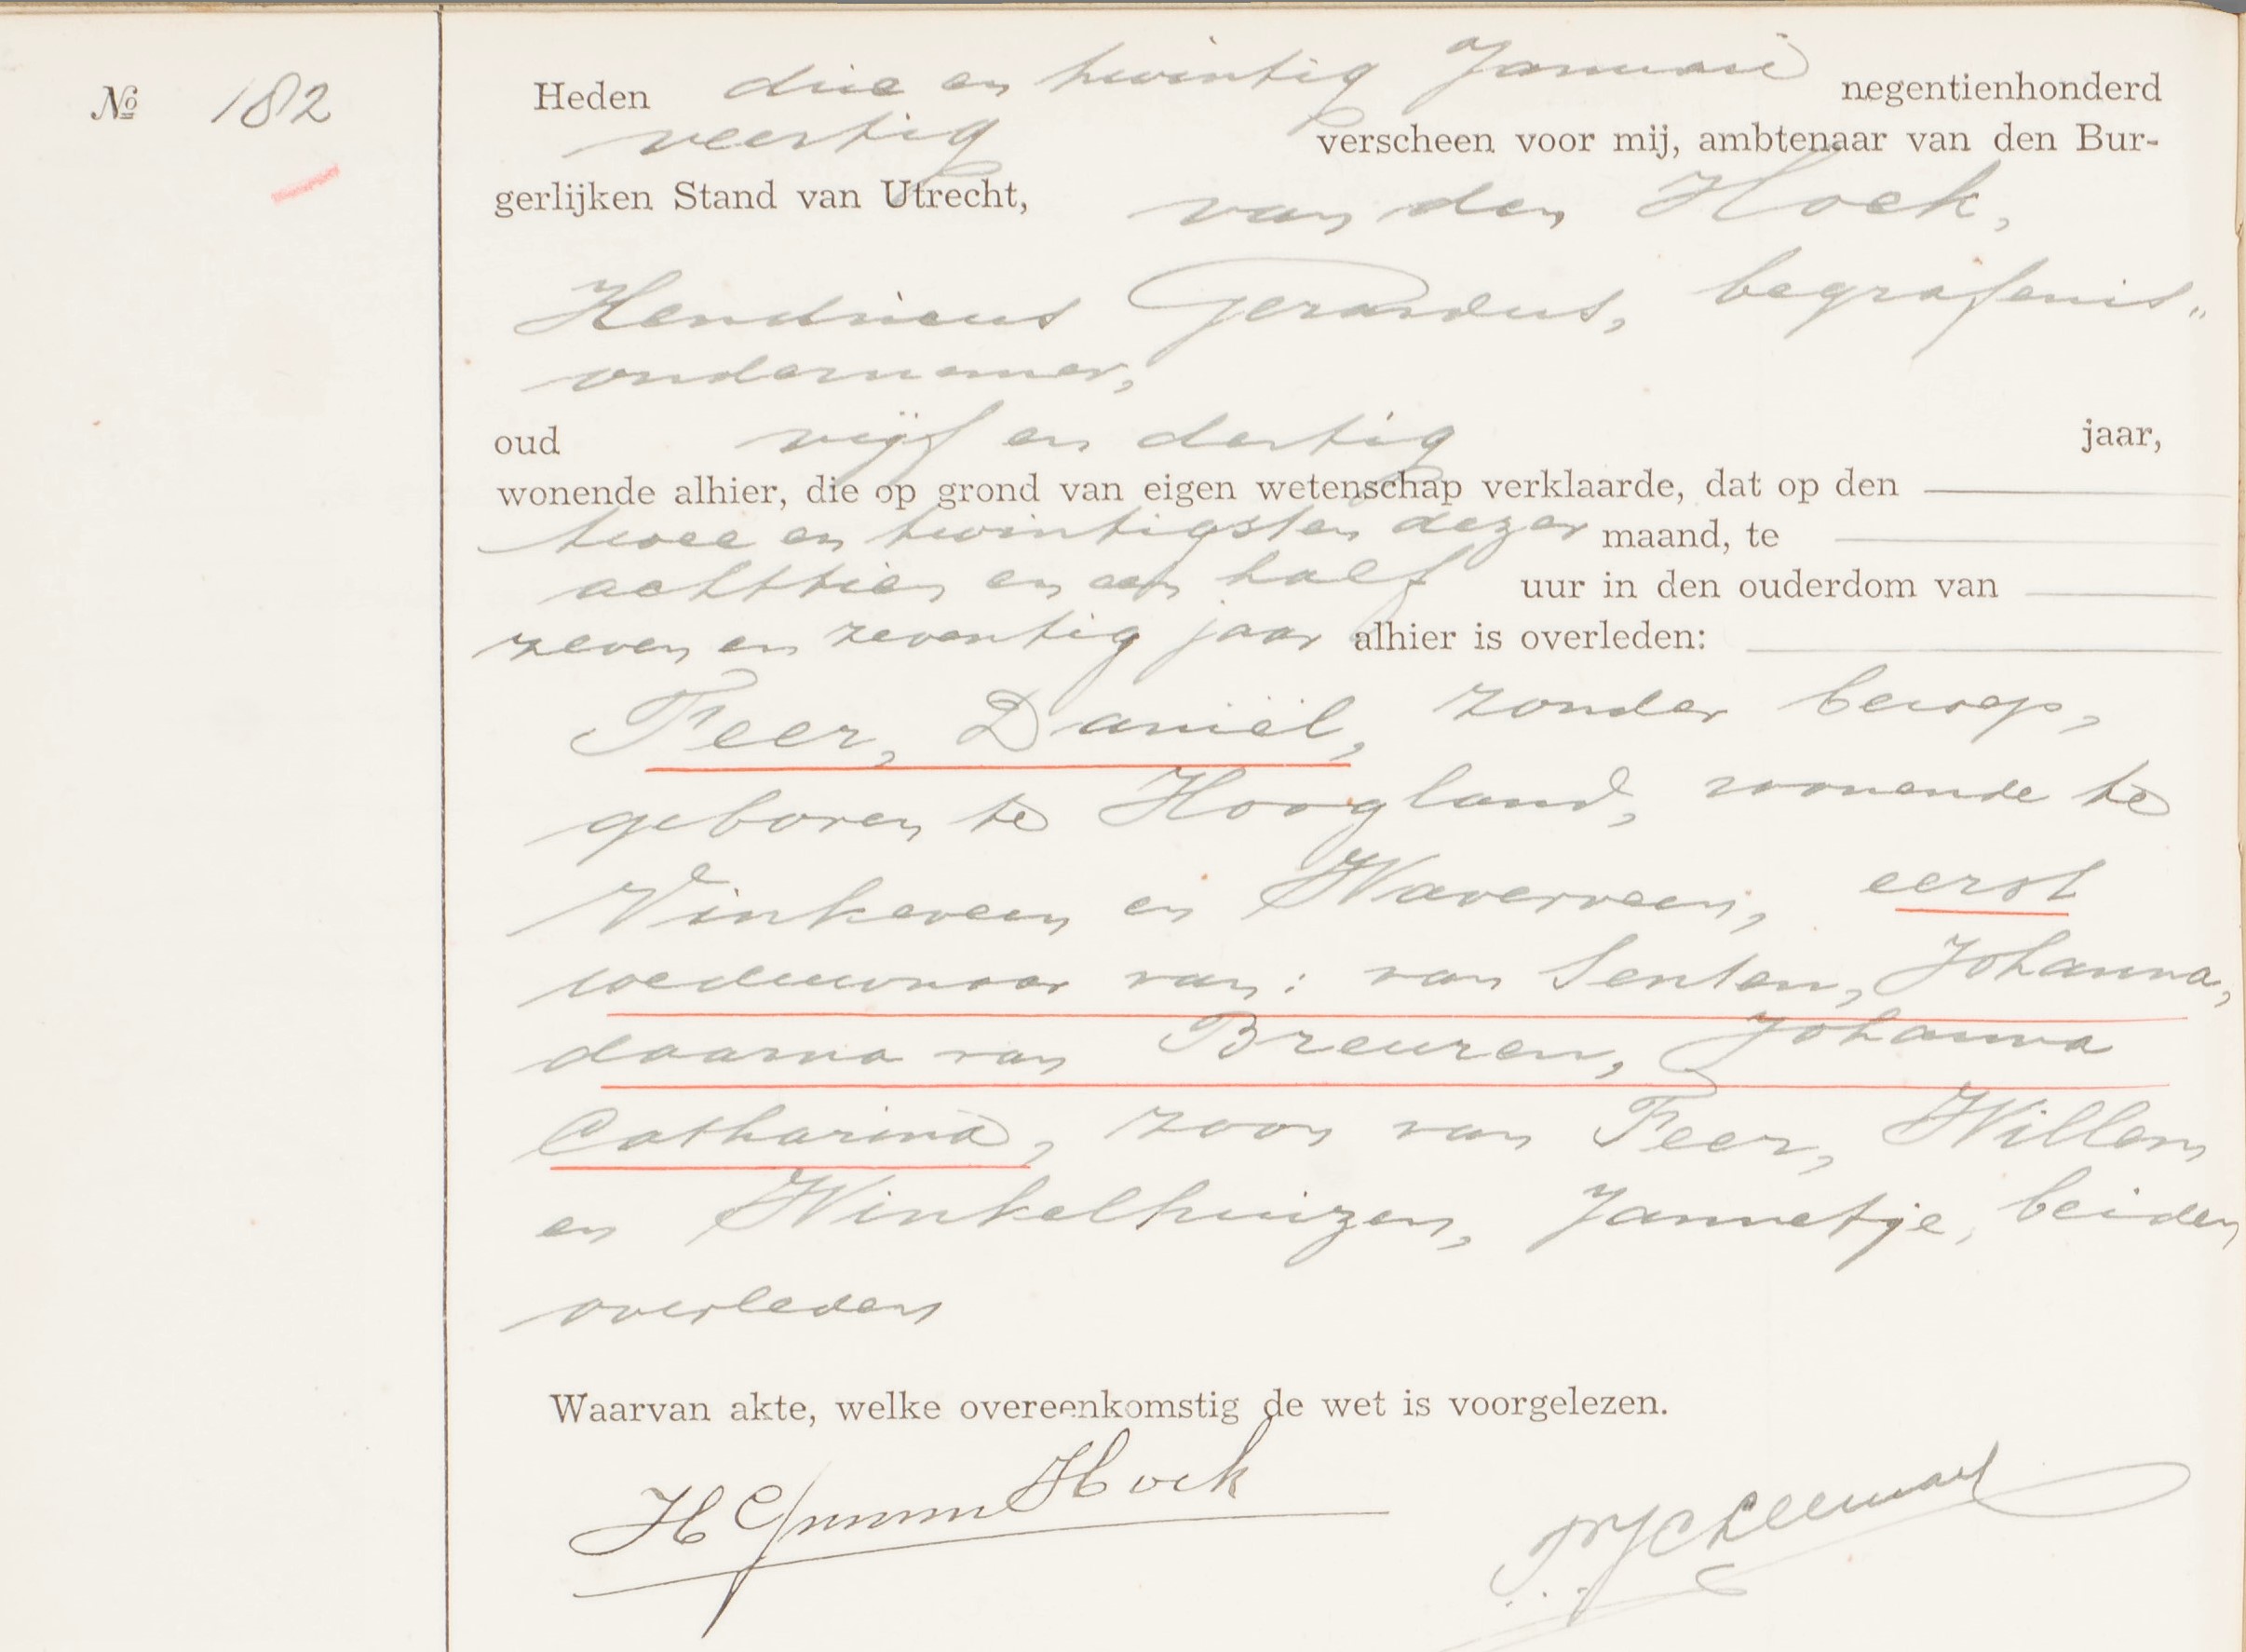 № 182
Heden drie en twintig Januari negentienhonderd
veertig verscheen voor mij, ambtenaar van den Bur-
gerlijken Stand van Utrecht, van den Hoek,
Hendricus Gerardus, begrafenis„
ondernemer,
oud vijf en dertig jaar,
wonende alhier, die op grond van eigen wetenschap verklaarde, dat op den
twee en twintigsten dezer maand, te
achttien en een half uur in den ouderdom van
zeven en zeventig jaar alhier is overleden:
Feer, Daniël, zonder beroep,
geboren te Hoogland, wonende te
Vinkeveen en Waverveen, eerst
weduwnaar van: van Senten, Johanna,
daarna van Breuren, Johanna
Catharina, zoon van Feer, Willem
en Winkelhuizen, Jannetje, beiden
overleden
Waarvan akte, welke overeenkomstig de wet is voorgelezen.
Hoek